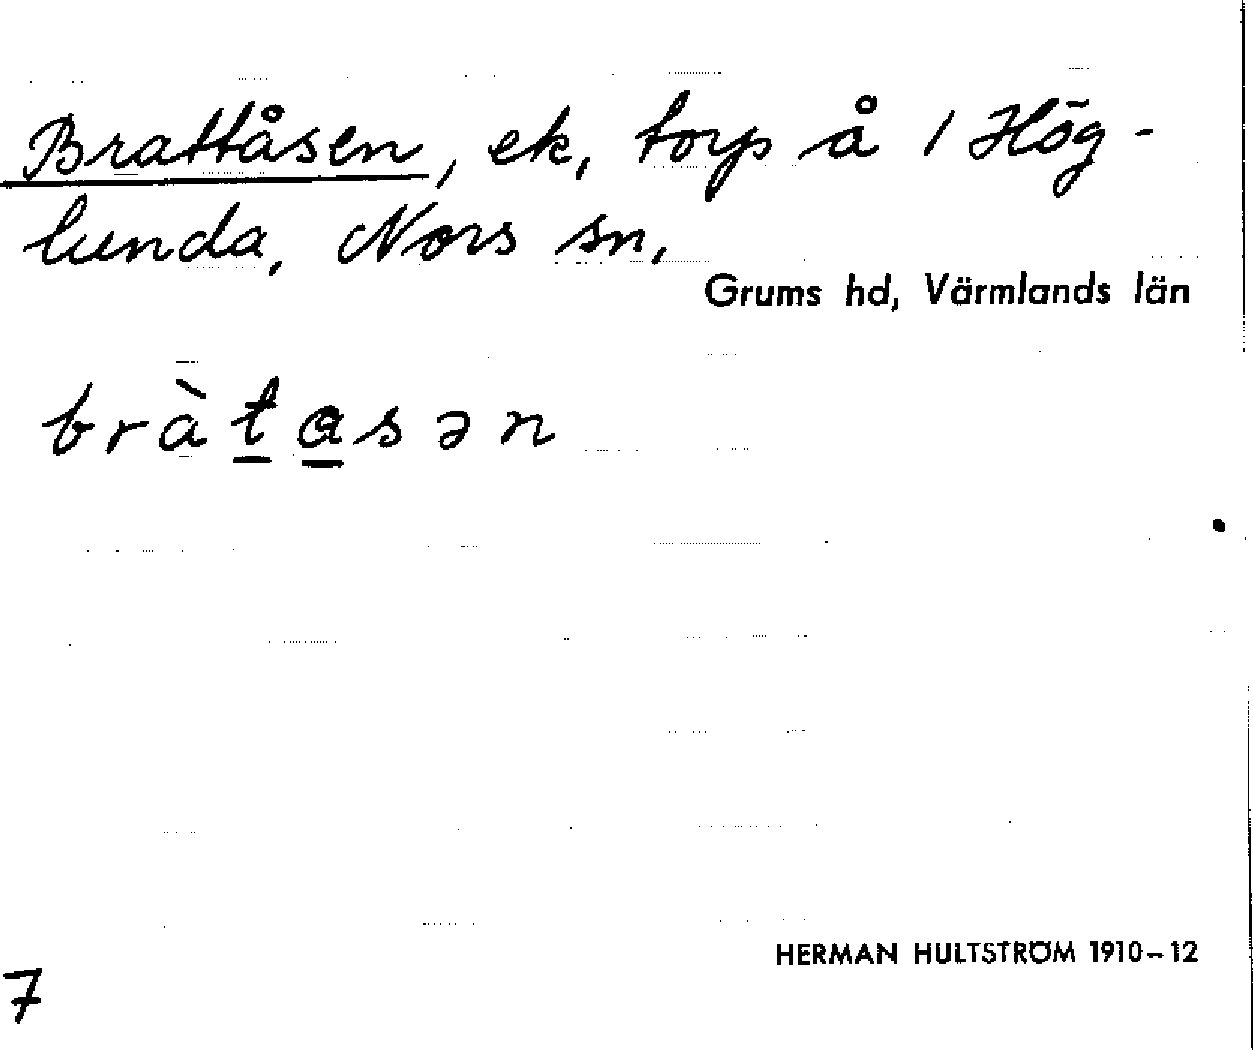 Brattåsen, ek, torp å 1 Hög-
lunda, Nors sn,
Grums hd, Värmlands län
bràt̲a̲sən
HERMAN HULTSTRÖM 1910-12
7